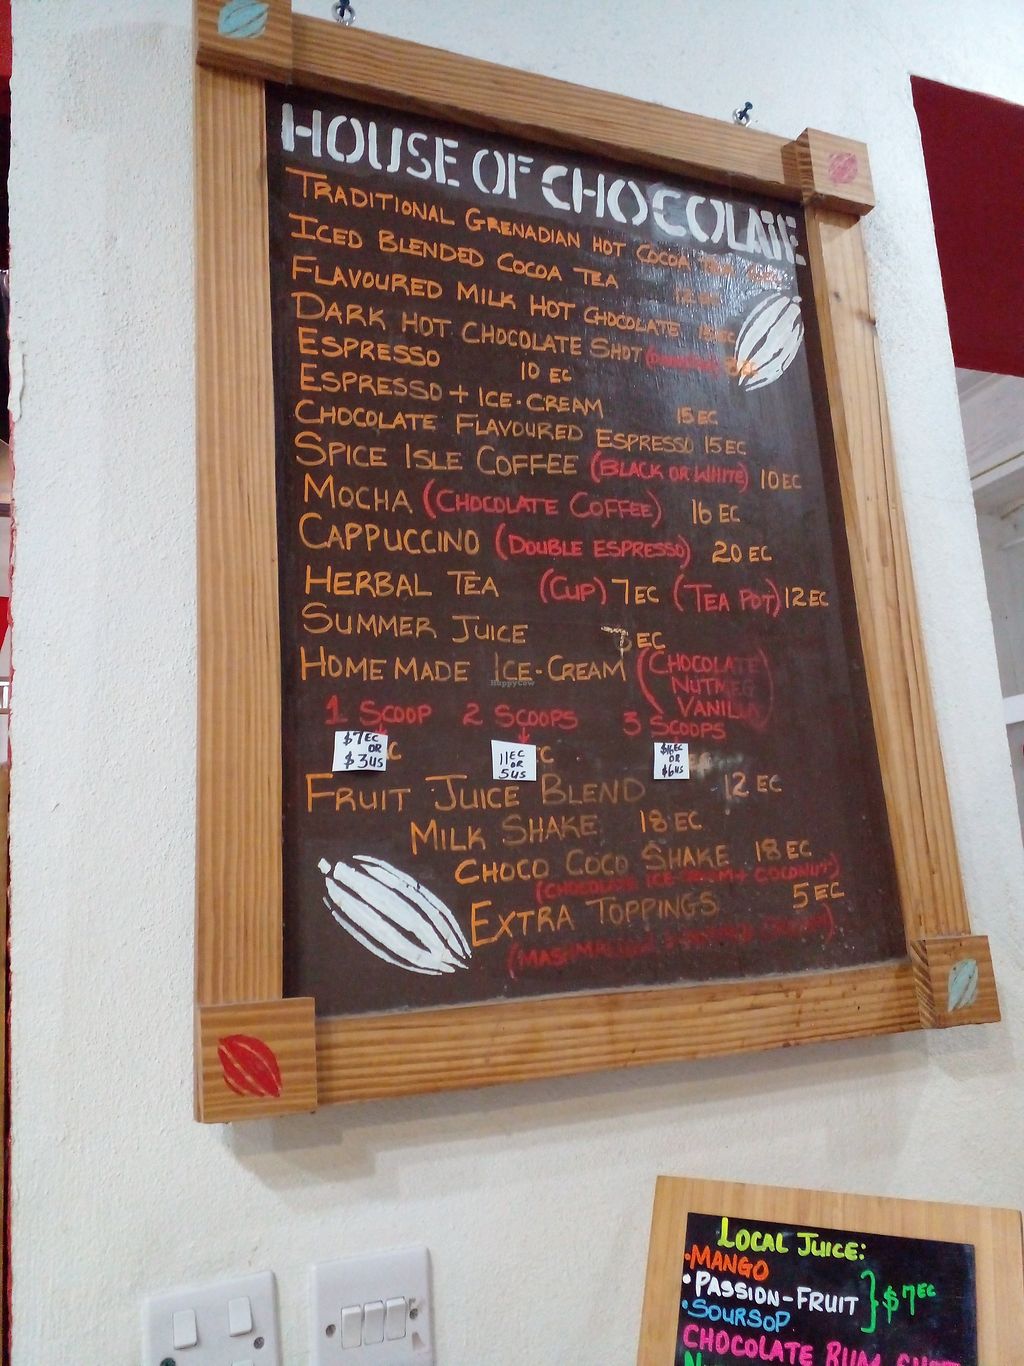 HOUSE OF CHOCOLATE
TRADITIONAL GRENADIAN HOT COCOA
ICED BLENDED COCOA TEA
FLAVOURED MILK HOT CHOCOLATE
DARK HOT CHOCOLATE SHOT
ESPRESSO 10 EC
ESPRESSO + ICE-CREAM 15 EC
CHOCOLATE FLAVOURED ESPRESSO 15 EC
SPICE ISLE COFFEE (BLACK OR WHITE) 10 EC
MOCHA (CHOCOLATE COFFEE) 16 EC
CAPPUCCINO (DOUBLE ESPRESSO) 20 EC
HERBAL TEA (CUP) 7 EC (TEA POT) 12 EC
SUMMER JUICE EC
HOME MADE ICE-CREAM (CHOCOLATE
NUTMEG
VANILLA)
1 SCOOP 2 SCOOPS 3 SCOOPS
$7 EC OR $3 US
11 EC OR 5 US
$16 EC OR $6 US
FRUIT JUICE BLEND 12 EC
MILK SHAKE 18 EC
CHOCO COCO SHAKE 18 EC
(CHOCOLATE ICE-CREAM + COCONUT)
EXTRA TOPPINGS 5 EC
(MASHMALLOW
HappyCow
LOCAL JUICE:
•MANGO
•PASSION-FRUIT } $7 EC
•SOURSOP
CHOCOLATE RUM